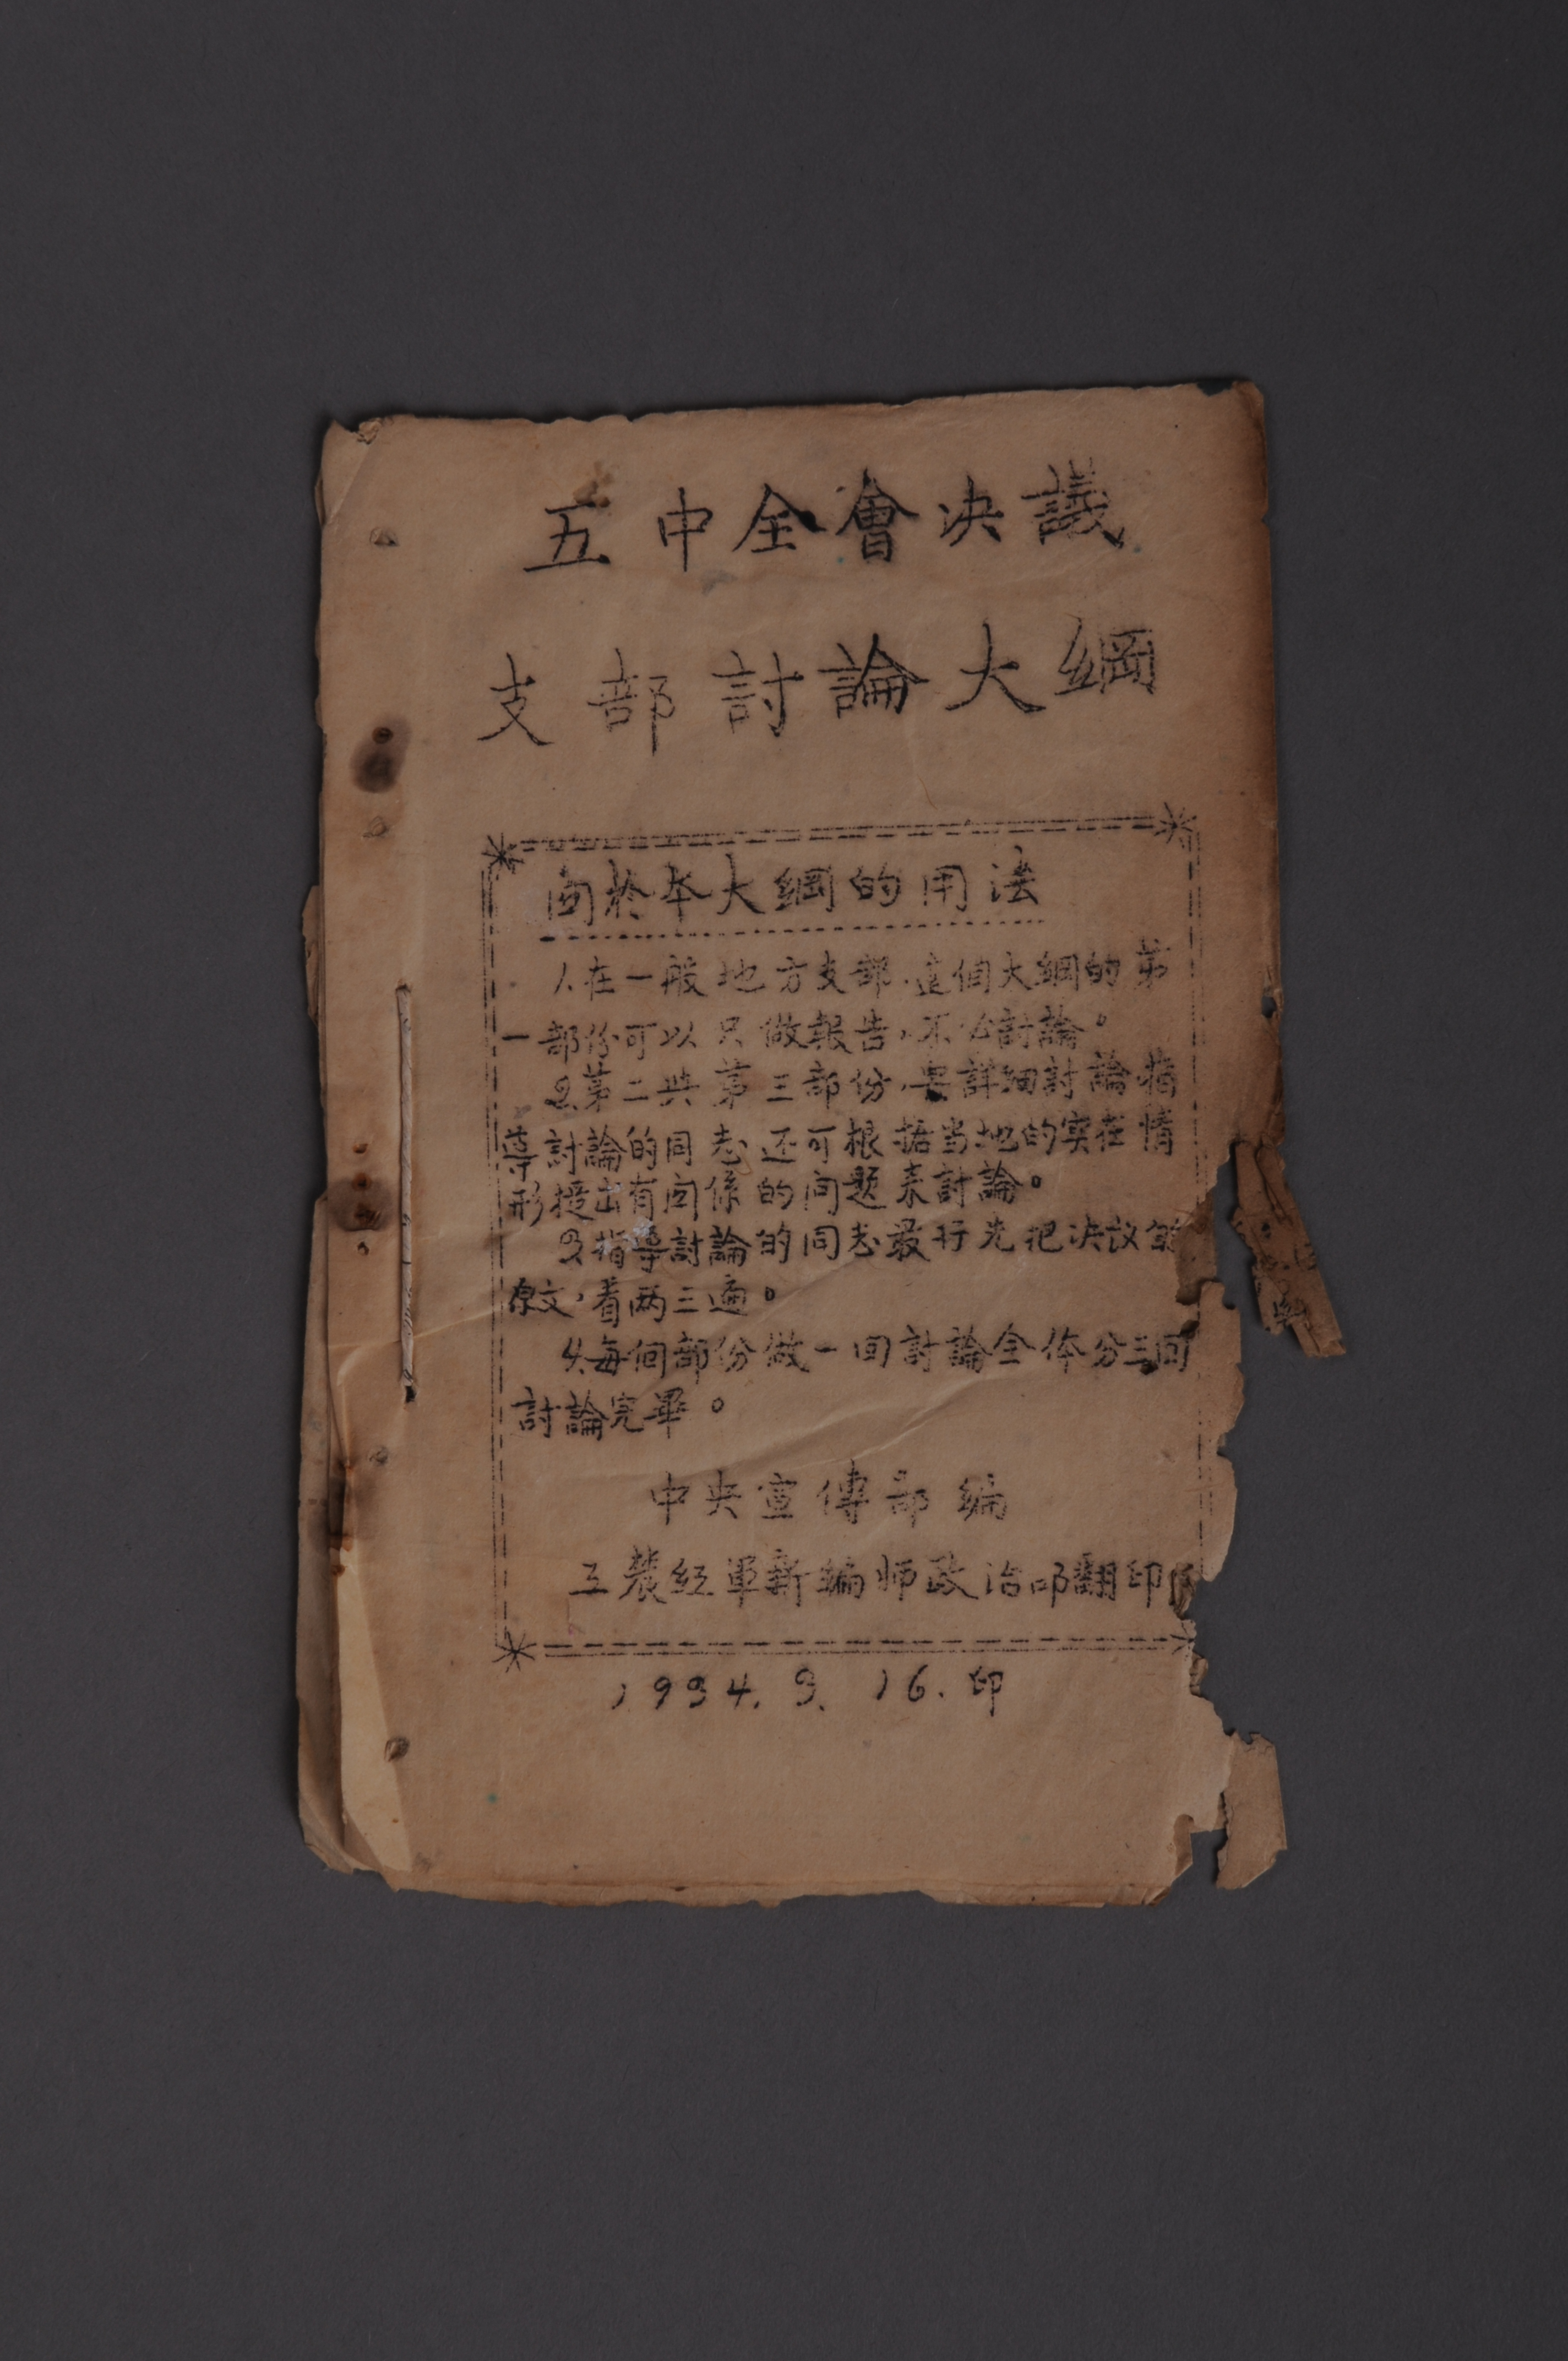 五中全會决議
支部討論大綱
関於本大綱的用法
1.在一般地方支部,這個大綱的第
一部份可以只做報告,不必討論。
2.第二與第三部份,要詳細討論,指
導討論的同志还可根据当地的实在情
形提出有関係的问題來討論。
3.指導討論的同志最好先把决议的
原文,看两三遍。
4.每個部份做一回討論全体分三回
討論完畢。
中央宣傳部编
工農红軍新编师政治部翻印
1934.3.16.印